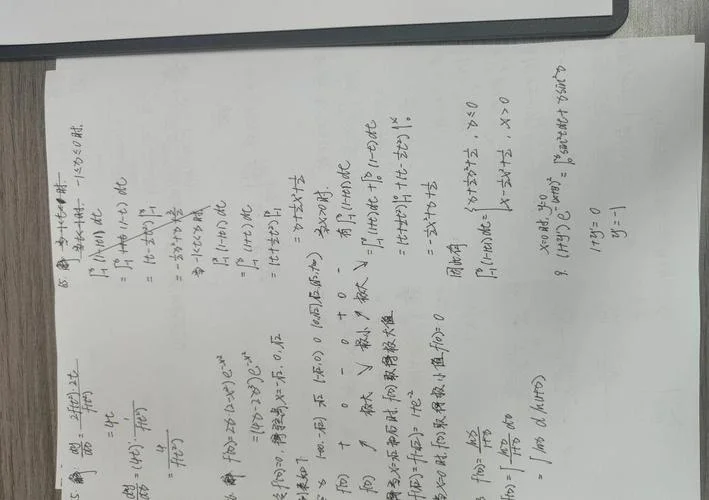 5. 解 dy/dx = 2f(t²)·2t / f(t²)
= 4t
= (4t)'· 1/f(t²)
= 4/f(t²)
6. 解 f'(x) = 2x(2-x²)e^{-x²}
= (4x-2x³)e^{-x²}
f'(x)=0, 得驻点 x=-√2, 0, √2
列表如下
x (-∞,-√2) -√2 (-√2,0) 0 (0,√2) √2 (√2,+∞)
f'(x) + 0 - 0 + 0 -
f(x) ↗ 极大 ↘ 极小 ↗ 极大 ↘
取得极大值
f(√2)=f(-√2)= 1+e^{-2}
x=0 时, f(x)取得极小值 f(0)=0
f'(x)= lnx/(1+x)
f(x) = ∫ lnx/(1+x) dx
= ∫ lnx d ln(1+x)
-1≤x≤0 时,
∫_{-1}^{x} (1-|t|) dt
= ∫_{-1}^{x} (1-t) dt
= (t-½t²)|_{-1}^{x}
= -½x²+x+3/2
∫_{-1}^{x} (1-|t|) dt
= ∫_{-1}^{x} (1+t) dt
= (t+½t²)|_{-1}^{x}
= x+½x²+½
当x>0时,
有∫_{-1}^{x} (1-|t|) dt
= ∫_{-1}^{0} (1+t) dt + ∫_{0}^{x} (1-t) dt
= (t+½t²)|_{-1}^{0} + (t-½t²)|_{0}^{x}
= -½x²+x+½
因此有
∫_{-1}^{x} (1-|t|) dt = { x+½x²+½, x≤0
x-½x²+½, x>0
x=0时, y=0
9. (1+y')e^{-(x+y)²} = ∫_{0}^{x} sin²t dt + x sin²x
1+y'=0
y'=-1